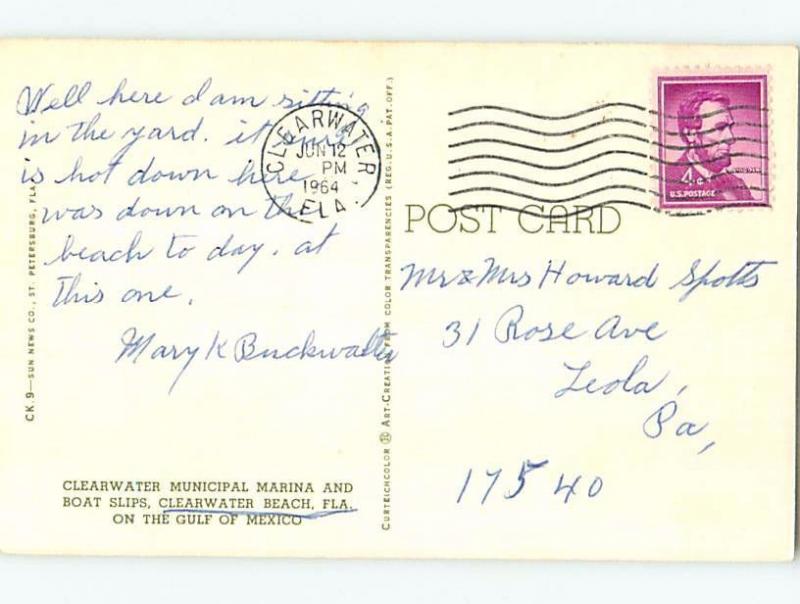 Well here I am sitting
in the yard. it sure
is hot down here
was down on the
beach to day. at
this one.
Mary K Buckwalter
CLEARWATER MUNICIPAL MARINA AND
BOAT SLIPS, CLEARWATER BEACH, FLA.
ON THE GULF OF MEXICO
CK.9—SUN NEWS CO., ST. PETERSBURG, FLA.
CURTEICHCOLOR ® ART-CREATION FROM COLOR TRANSPARENCIES (REG. U.S.A. PAT. OFF.)
CLEARWATER,
JUN 12
PM
1964
FLA.
4¢
U.S. POSTAGE
POST CARD
Mr & Mrs Howard Spotts
31 Rose Ave
Leola,
Pa,
17540